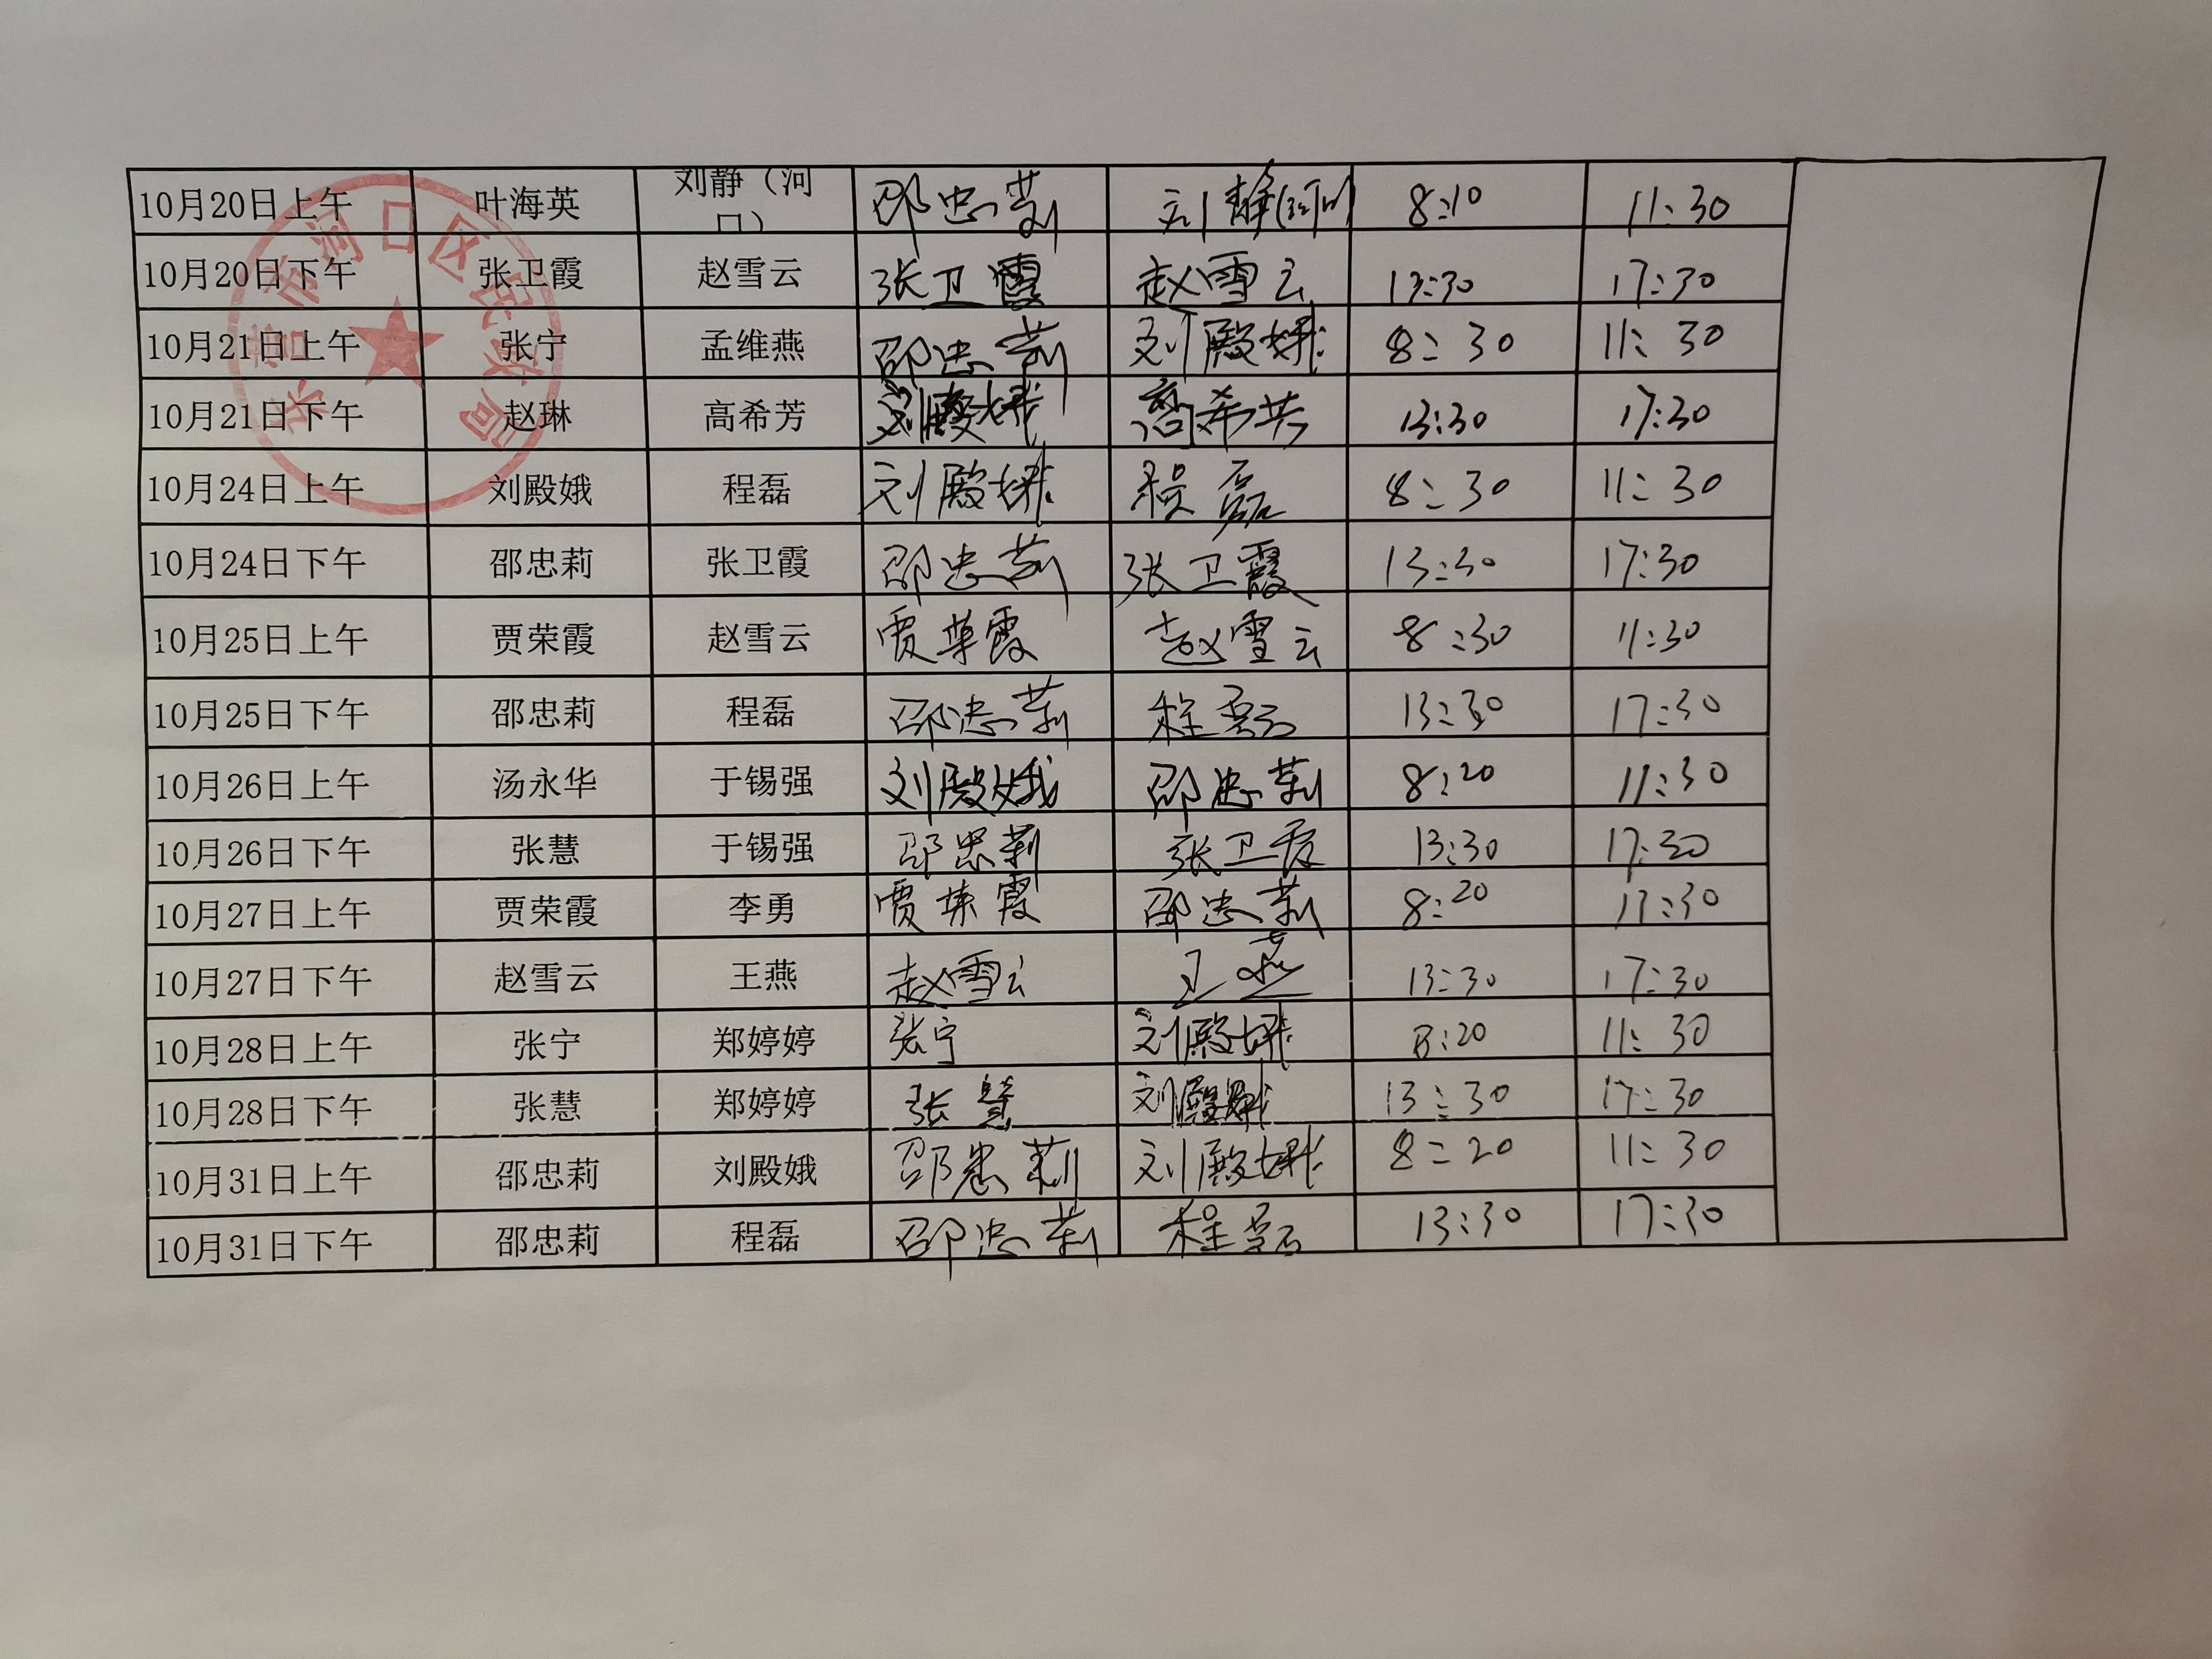 10月20日上午 叶海英 刘静（河口） 邵忠莉 刘静(河口) 8:10 11:30
10月20日下午 张卫霞 赵雪云 张卫霞 赵雪云 13:30 17:30
10月21日上午 张宁 孟维燕 邵忠莉 刘殿娥 8:30 11:30
10月21日下午 赵琳 高希芳 刘殿娥 高希芳 13:30 17:30
10月24日上午 刘殿娥 程磊 刘殿娥 程磊 8:30 11:30
10月24日下午 邵忠莉 张卫霞 邵忠莉 张卫霞 13:30 17:30
10月25日上午 贾荣霞 赵雪云 贾荣霞 赵雪云 8:30 11:30
10月25日下午 邵忠莉 程磊 邵忠莉 程磊 13:30 17:30
10月26日上午 汤永华 于锡强 刘殿娥 邵忠莉 8:20 11:30
10月26日下午 张慧 于锡强 邵忠莉 张卫霞 13:30 17:30
10月27日上午 贾荣霞 李勇 贾荣霞 邵忠莉 8:20 11:30
10月27日下午 赵雪云 王燕 赵雪云 王燕 13:30 17:30
10月28日上午 张宁 郑婷婷 张宁 刘殿娥 8:20 11:30
10月28日下午 张慧 郑婷婷 张慧 刘殿娥 13:30 17:30
10月31日上午 邵忠莉 刘殿娥 邵忠莉 刘殿娥 8:20 11:30
10月31日下午 邵忠莉 程磊 邵忠莉 程磊 13:30 17:30
东营市河口区民政局